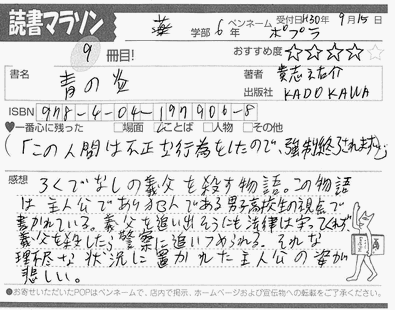 読書マラソン
薬 学部 6年 ペンネーム ポプラ 受付日 H30年 9月15日
9 冊目! おすすめ度 ☆☆☆☆
書名 青の炎 著者 貴志祐介
出版社 KADOKAWA
ISBN 978-4-04-197906-8
♥一番心に残った □場面 ☑ことば □人物 □その他
(「この人間は不正な行為をしたので、強制終了されます」)
感想 ろくでなしの義父を殺す物語。この物語
は主人公であり犯人である男子高校生の視点で
書かれている。義父を追い出そうにも法律は守ってくれず、
義父を殺したら警察に追いつめられる。それな
理不尽な状況に置かれた主人公の姿が
悲しい。
●お寄せいただいたPOPはペンネームで、店内で掲示、ホームページおよび宣伝物への転載をご了承ください。